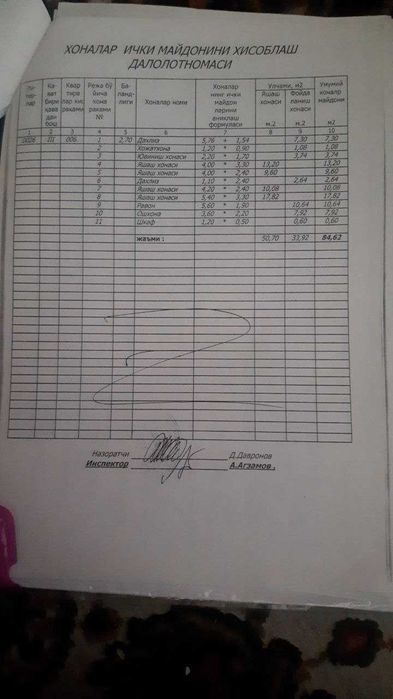 ХОНАЛАР ИЧКИ МАЙДОНИНИ ХИСОБЛАШ
ДАЛОЛОТНОМАСИ
Ка- Квар Режа бў Ба- Хоналар Улчами, м2 Умумий
ват тире йича ланд- Хоналар номи нинг ички Яшаш Фойда хоналр
бири лар хис хона лиги майдон хонаси ланиш майдони
кава раками раками ларини хонаси
дан № аниклаш
бош формуласи м.2 м.2 м2
1 2 3 4 5 6 7 8 9 10
III 006 1 2,70 Дахлиз 5,76 * 1,54 7,30 7,30
2 Хожатхона 1,20 * 0,90 1,08 1,08
3 Ювиниш хонаси 2,20 * 1,70 3,74 3,74
4 Яшаш хонаси 4,00 * 3,30 13,20 13,20
5 Яшаш хонаси 4,00 * 2,40 9,60 9,60
6 Дахлиз 1,10 * 2,40 2,64 2,64
7 Яшаш хонаси 4,20 * 2,40 10,08 10,08
8 Яшаш хонаси 5,40 * 3,30 17,82 17,82
9 Равон 5,60 * 1,90 10,64 10,64
10 Ошхона 3,60 * 2,20 7,92 7,92
11 Шкаф 1,20 * 0,50 0,60 0,60
жаъми : 50,70 33,92 84,62
Назоратчи Д.Давронов
Инспектор А.Агзамов .